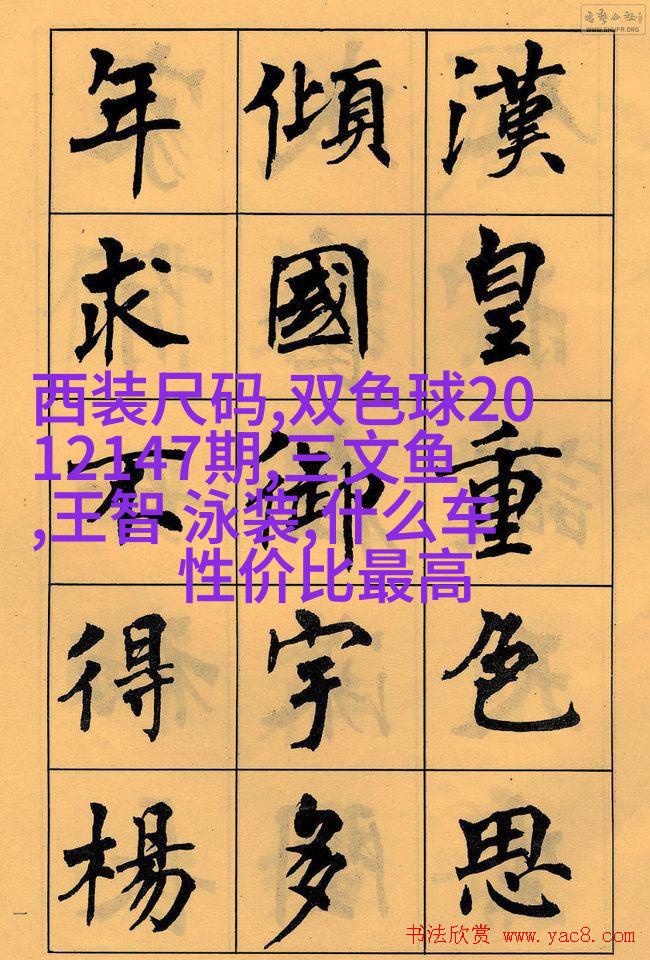 书艺公社
WWW.SHUFA.ORG
漢皇重色思
傾國御宇多
年求不得楊
西装尺码,双色球20
12147期,三文鱼
,王智 泳装,什么车
性价比最高
一
书法欣赏 www.yac8.com